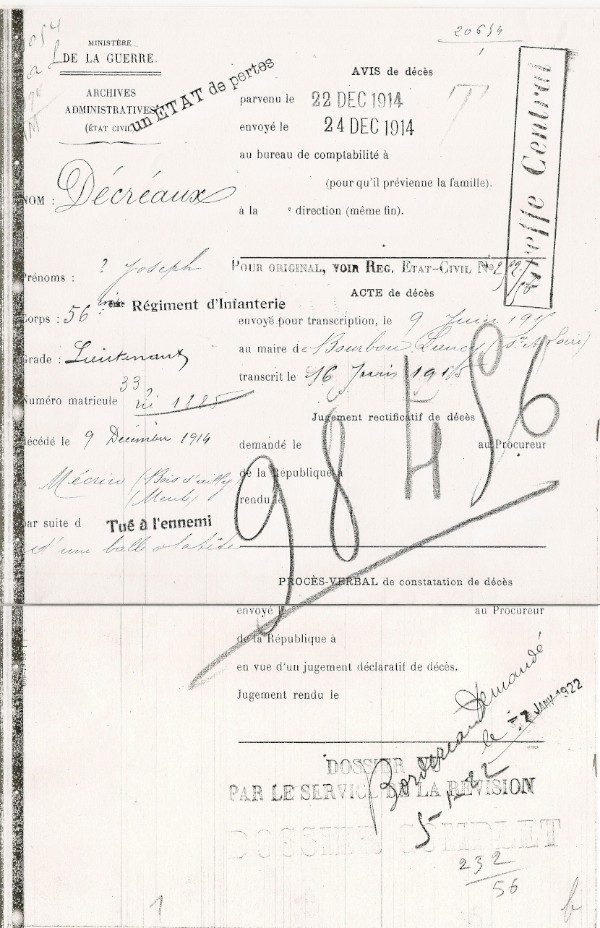 20654
1
MINISTÈRE
DE LA GUERRE.
ARCHIVES
ADMINISTRATIVES
(ÉTAT CIVIL)
un ETAT de pertes
NOM : Décréaux
Prénoms : ? Joseph
Corps : 56 Régiment d'Infanterie
Grade : Lieutenant
33
Numéro matricule 1885
Décédé le 9 Décembre 1914
Mécrin (Bois d'ailly
(Meuse)
par suite d Tué à l'ennemi
d'une balle à la tête
AVIS de décès
parvenu le 22 DEC 1914
envoyé le 24 DEC 1914
au bureau de comptabilité à
(pour qu'il prévienne la famille).
à la ° direction (même fin).
T
Greffe Central
POUR ORIGINAL, VOIR REG. ETAT-CIVIL No
ACTE de décès
envoyé pour transcription, le 9 Juin 1915
au maire de Bourbon Lancy (Sne et Loire)
transcrit le 16 Juin 1915
Jugement rectificatif de décès
demandé le au Procureur
de la République à
rendu le
98456
PROCÈS-VERBAL de constatation de décès
envoyé le au Procureur
de la République à
en vue d'un jugement déclaratif de décès.
Jugement rendu le
Bordereau Demandé
le JANV 1922
5-1-22
DOSSIER
PAR LE SERVICE DE LA REVISION
DOSSIER COMPLET
232
56
1